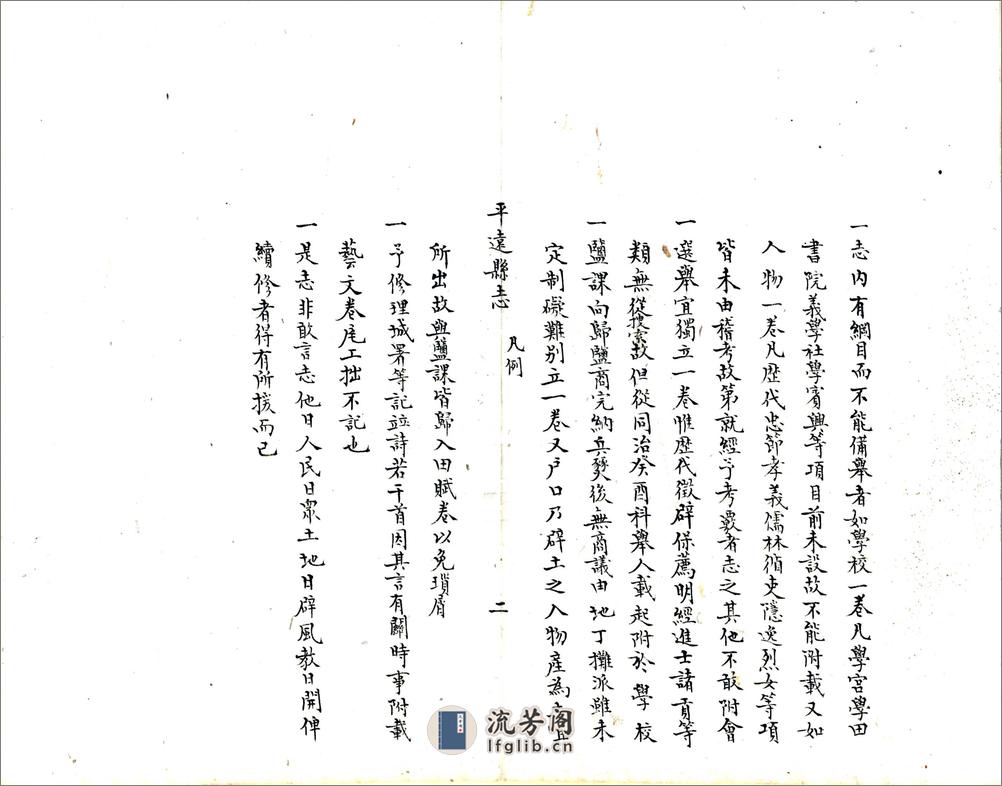 一志内有綱目而不能備舉者如學校一卷凡學宮學田
書院義學社學賓興等項目前未設故不能附載又如
人物一卷凡歷代忠節孝義儒林循吏隱逸烈女等項
皆未由稽考故第就經予考覈者志之其他不敢附會
一選舉宜獨立一卷惟歷代徵辟保薦明經進士諸貢等
類無從搜索故但從同治癸酉科舉人載起附於學校
一鹽課向歸鹽商完納兵燹後無商議由地丁攤派雖未
定制礙難别立一卷又户口乃辟土之入物產為
平遠縣志
凡例
二
所出故與鹽課皆歸入田賦卷以免瑣屑
一予修理城署等記竝詩若干首因其言有關時事附載
藝文卷尾工拙不記也
一是志非敢言志他日人民日衆土地日辟風教日開俾
續修者得有所援而已
流芳阁
lfglib.cn